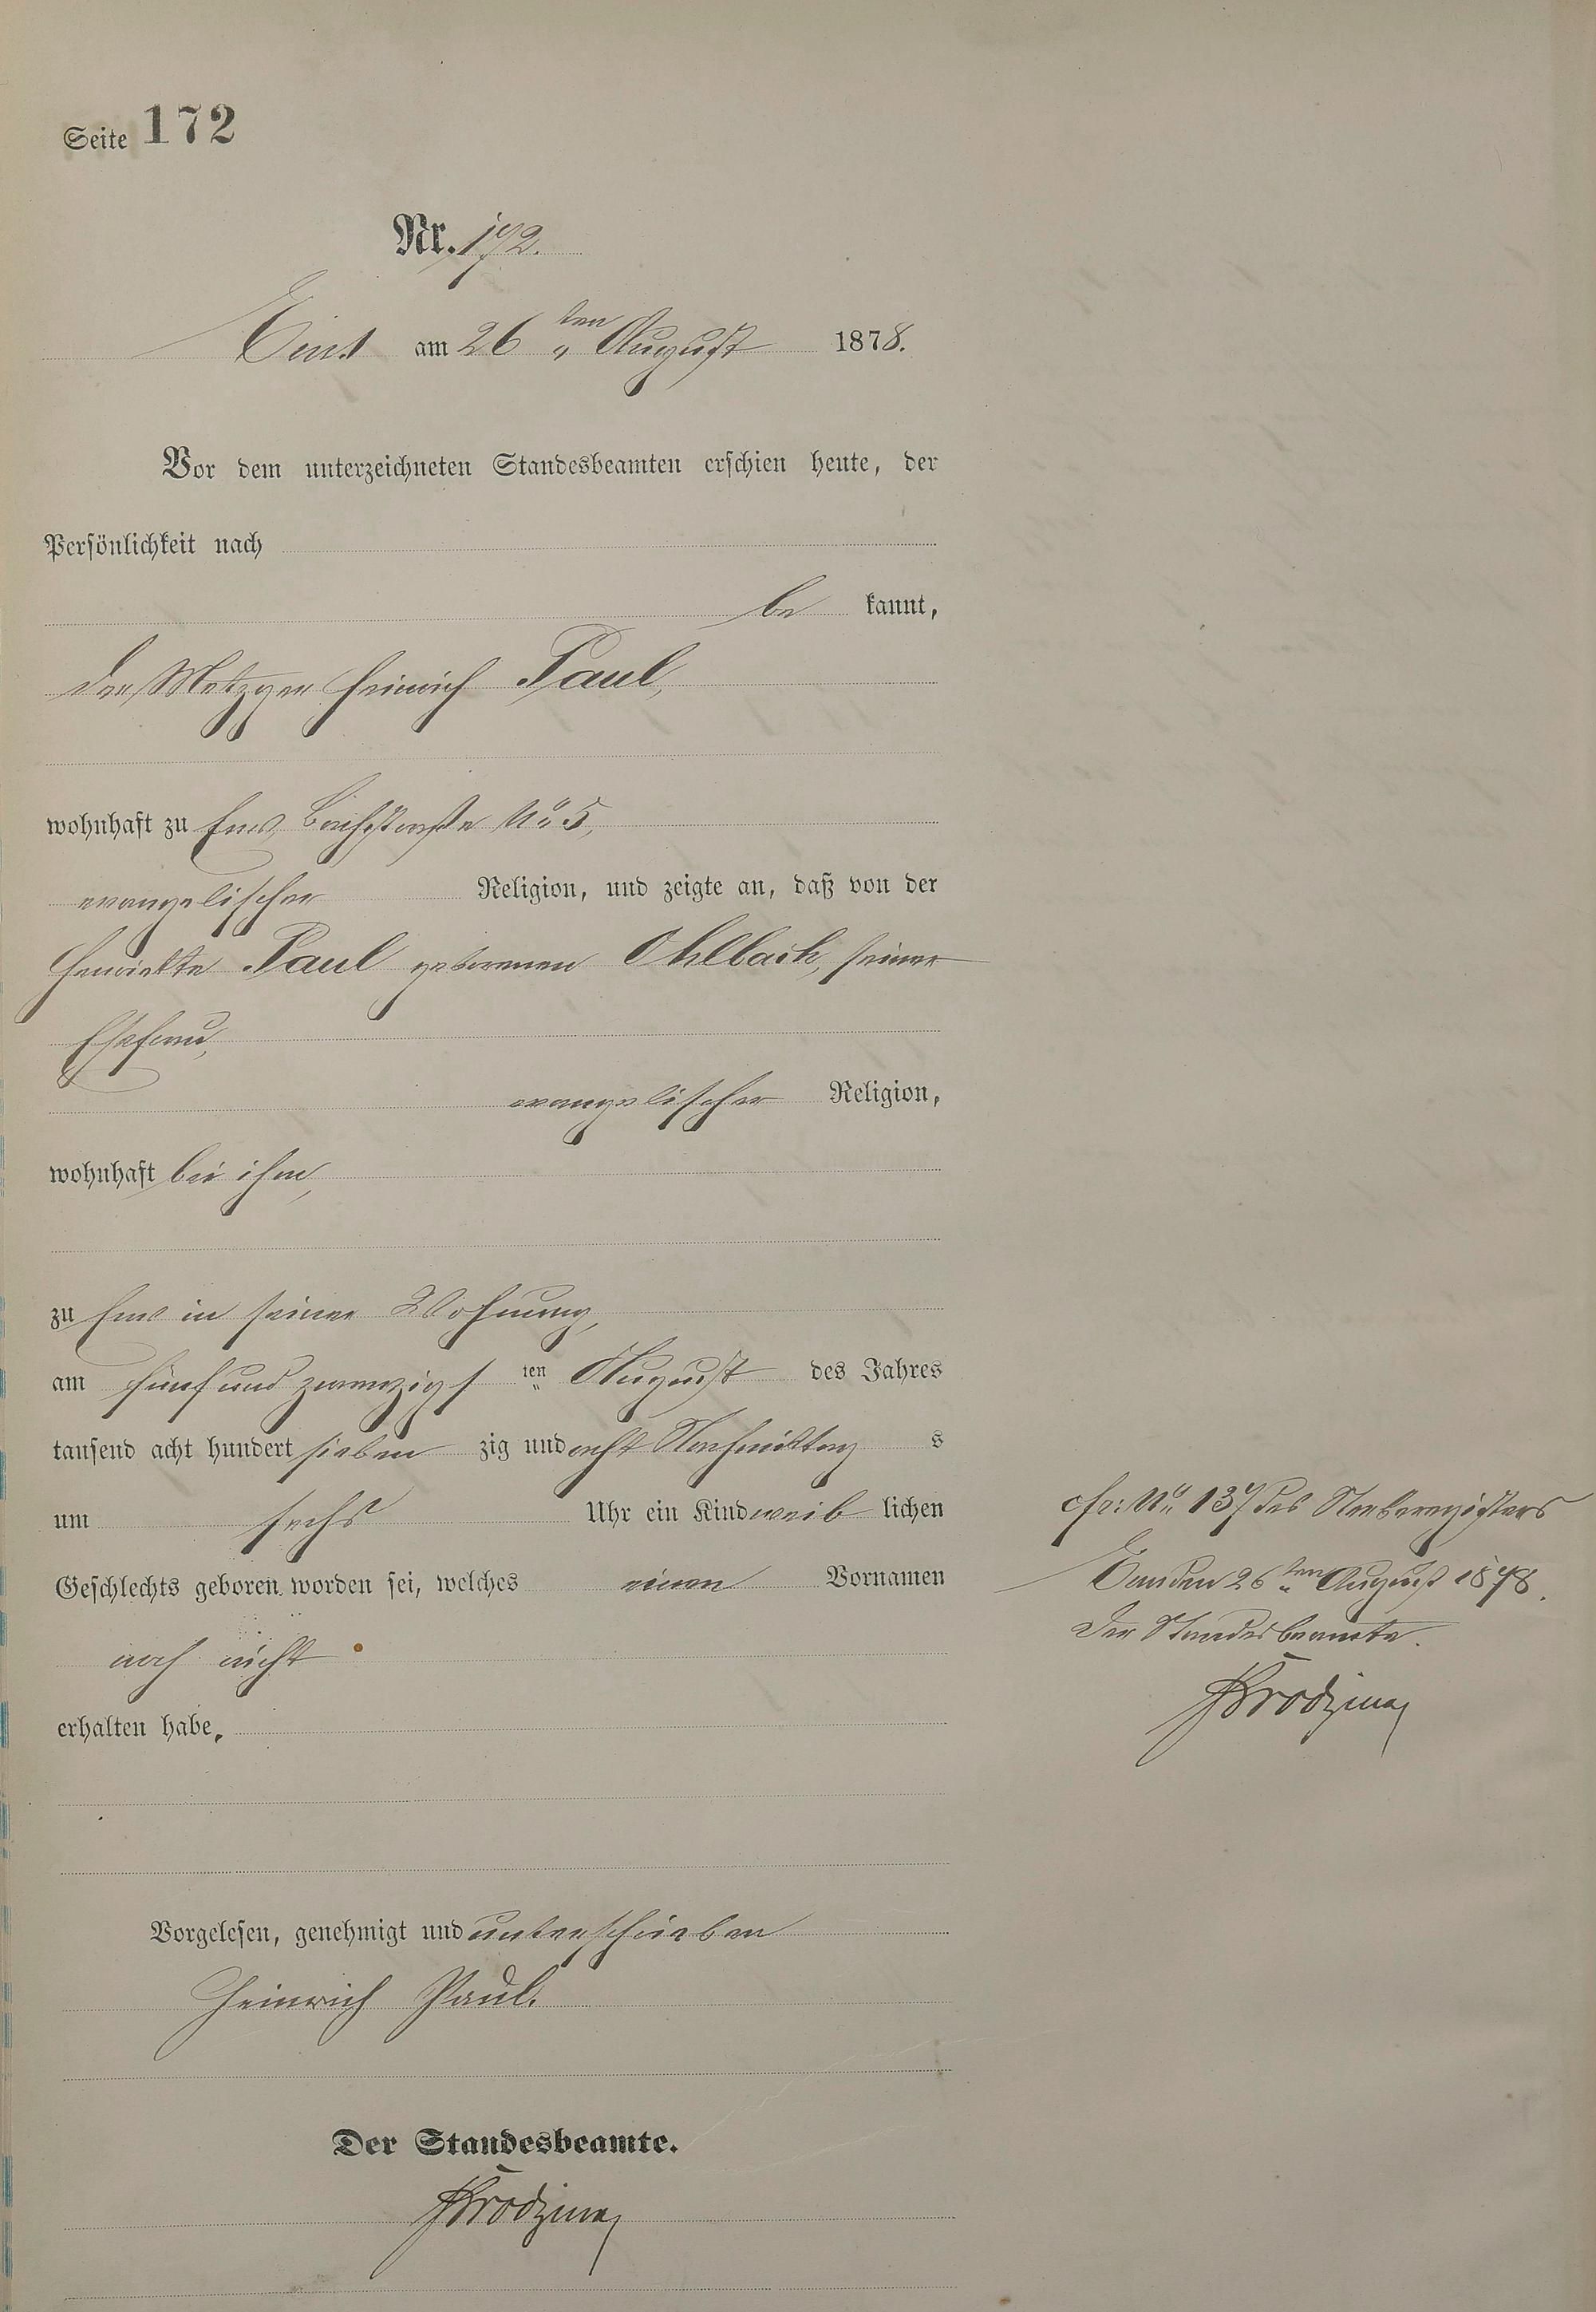 Seite 172
Nr. 172.
Ems am 26 ten August 1878.
Vor dem unterzeichneten Standesbeamten erschien heute, der
Persönlichkeit nach
be kannt,
der Metzger Heinrich Paul,
wohnhaft zu Ems, Bachstraße No 5,
evangelischer Religion, und zeigte an, daß von der
Henriette Paul geborenen Ohlbach, seiner
Ehefrau,
evangelischer Religion,
wohnhaft bei ihm,
zu Ems in seiner Wohnung,
am fünf und zwanzigs ten August des Jahres
tausend acht hundert sieben zig und acht Nachmittag s
um sechs Uhr ein Kind weib lichen
Geschlechts geboren worden sei, welches einen Vornamen
noch nicht
erhalten habe.
Vorgelesen, genehmigt und unterschrieben
Heinrich Paul.
Der Standesbeamte.
cfr: No 137 des Sterberegisters
Ems den 26 ten August 1878.
Der Standesbeamte.